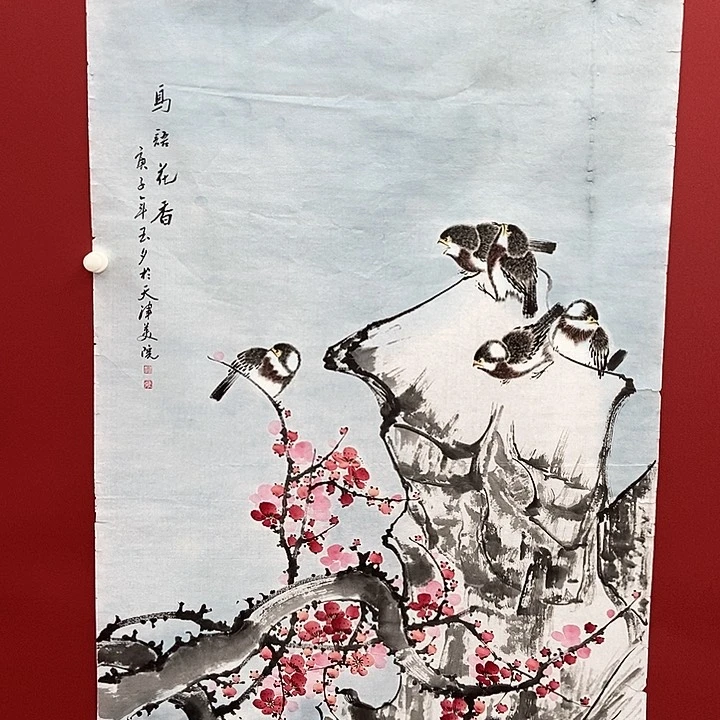 鳥語花香
庚子年玉夕於天津美院